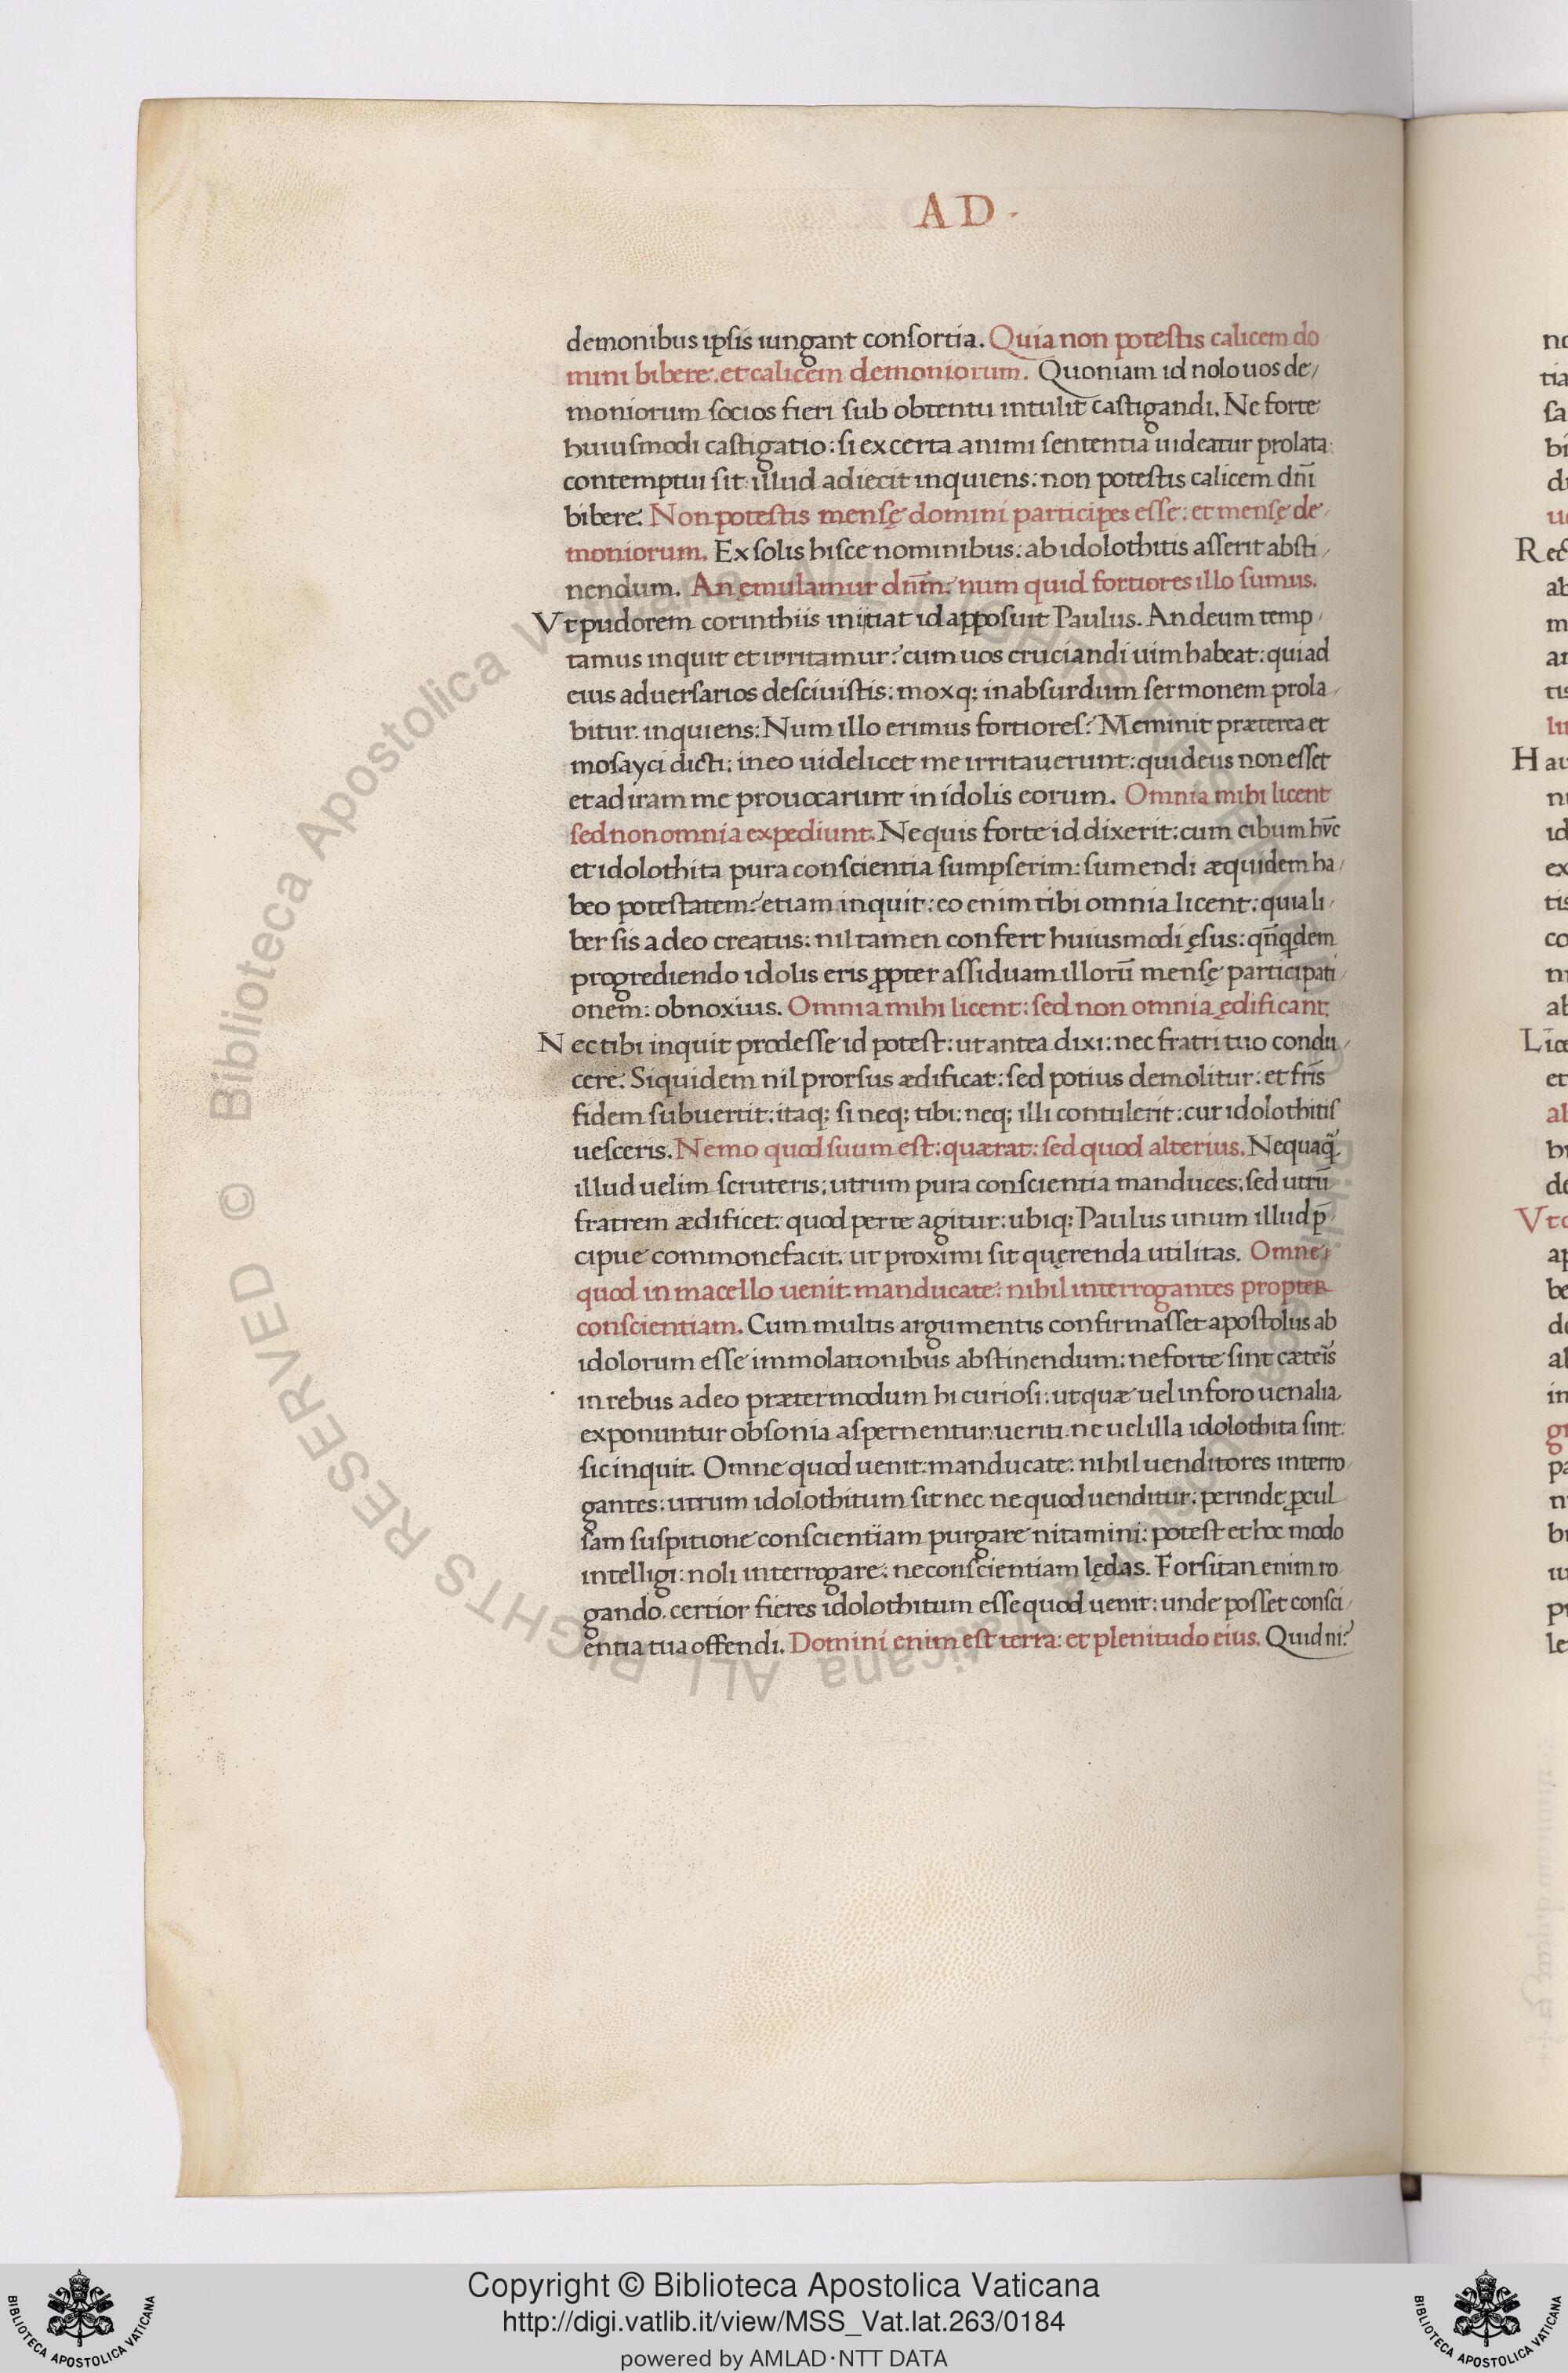 AD·
demonibus ipsis iungant consortia. Quia non potestis calicem do
mini bibere: et calicem demoniorum. Quoniam id nolo uos de/
moniorum socios fieri sub obtentu intulit castigandi. Ne forte
huiusmodi castigatio: si ex certa animi sententia uideatur prolata:
contemptui sit: illud adiecit inquiens: non potestis calicem dnī
bibere. Non potestis mensę domini participes esse: et mensę de/
moniorum. Ex solis hisce nominibus: ab idolothitis asserit absti/
nendum. An ęmulamur dnm̄: num quid fortiores illo sumus.
Vt pudorem corinthiis initiat id apposuit Paulus. An deum temp/
tamus inquit et irritamur? cum uos cruciandi uim habeat: qui ad
eius aduersarios desciuistis: moxq; in absurdum sermonem prola/
bitur. inquiens: Num illo erimus fortiores? Meminit præterea et
mosayci dicti: in eo uidelicet me irritauerunt: qui deus non esset
et ad iram me prouocarunt in idolis eorum. Omnia mihi licent
sed non omnia expediunt. Ne quis forte id dixerit: cum cibum hūc
et idolothita pura conscientia sumpserim: sumendi æquidem ha/
beo potestatem? etiam inquit: eo enim tibi omnia licent: quia li/
ber sis a deo creatus: nil tamen confert huiusmodi ęsus: qn̄qdem
progrediendo idolis eris ꝓpter assiduam illorū mensę participati/
onem: obnoxius. Omnia mihi licent: sed non omnia ędificant.
Nec tibi inquit prodesse id potest: ut antea dixi: nec fratri tuo condu/
cere. Siquidem nil prorsus ædificat: sed potius demolitur: et fr̄is
fidem subuertit: itaq; si neq; tibi: neq; illi contulerit: cur idolothitis
uesceris. Nemo quod suum est: quærat: sed quod alterius. Nequaq̃
illud uelim scruteris: utrum pura conscientia manduces: sed utrū
fratrem ædificet: quod per te agitur: ubiq; Paulus unum illud p̄
cipue commonefacit: ut proximi sit quęrenda utilitas. Omne
quod in macello uenit: manducate: nihil interrogantes propter
conscientiam. Cum multis argumentis confirmasset apostolus ab
idolorum esse immolationibus abstinendum: ne forte sint cæteis̃
in rebus adeo præter modum hi curiosi: ut quæ uel in foro uenalia
exponuntur obsonia aspernentur: ueriti ne uel illa idolothita sint:
sic inquit. Omne quod uenit: manducate: nihil uenditores interro/
gantes: utrum idolothitum sit nec ne quod uenditur: perinde ꝑcul
sam suspitione conscientiam purgare nitamini: potest et hoc modo
intelligi: noli interrogare: ne conscientiam lędas. Forsitan enim ro
gando. certior fieres idolothitum esse quod uenit: unde posset consci/
entia tua offendi. Domini enim est terra: et plenitudo eius. Quid ni?
Copyright © Biblioteca Apostolica Vaticana
http://digi.vatlib.it/view/MSS_Vat.lat.263/0184
powered by AMLAD·NTT DATA